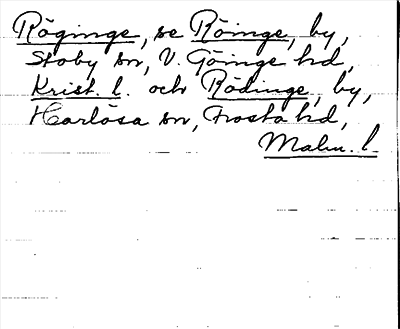 Röginge, se Röinge, by,
Stoby sn, V. Göinge hd,
Krist. l. och Rödinge, by,
Harlösa sn, Frosta hd,
Malm. l.